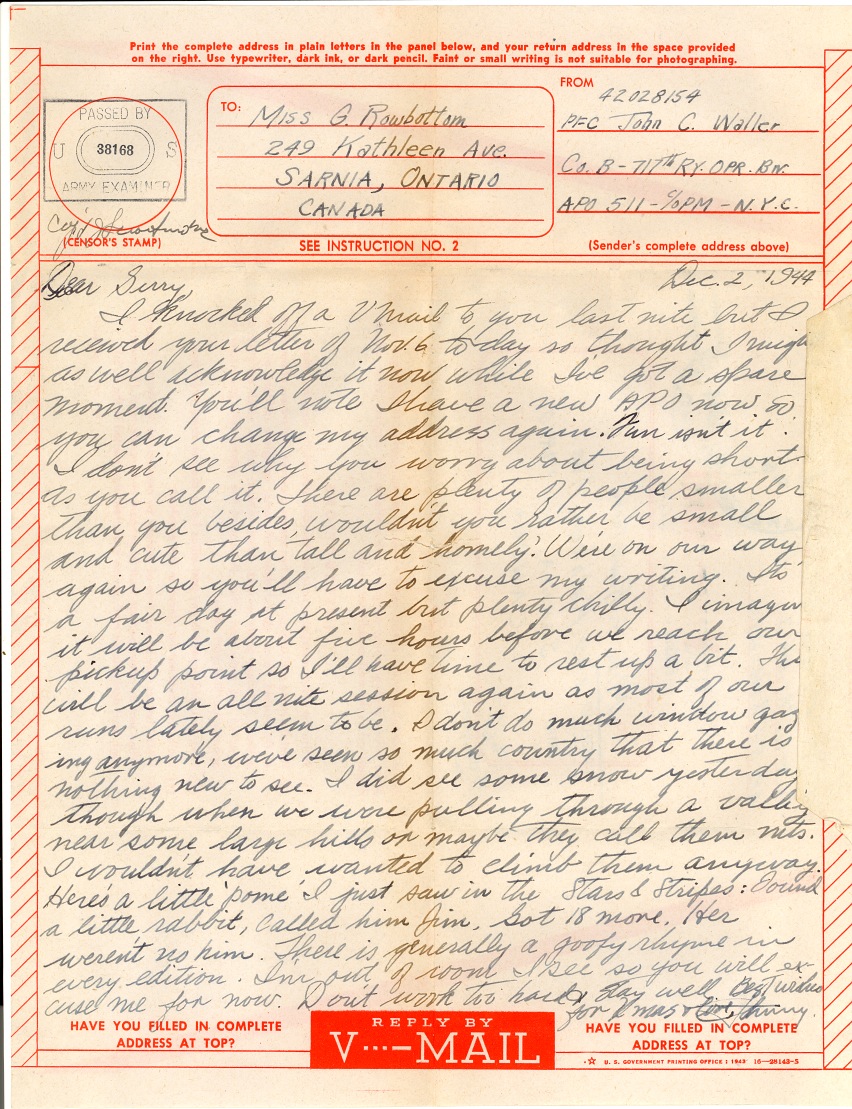 Print the complete address in plain letters in the panel below, and your return address in the space provided
on the right. Use typewriter, dark ink, or dark pencil. Faint or small writing is not suitable for photographing.
PASSED BY
U 38168 S
ARMY EXAMINER
(CENSOR'S STAMP)
TO: Miss G. Rowbottom
249 Kathleen Ave.
SARNIA, ONTARIO
CANADA
SEE INSTRUCTION NO. 2
FROM
42028154
PFC John C. Waller
Co. B - 717th RY. OPR. BN.
APO 511 - c/o PM - N.Y.C.
(Sender's complete address above)
Dec. 2, 1944
Dear Gerry,
I knocked off a V mail to you last nite but I
received your letter of Nov. 6 to day so thought I migh
as well acknowledge it now while I've got a spare
moment. You'll note I have a new APO now so
you can change my address again. Fun isn't it.
I don't see why you worry about being short
as you call it. There are plenty of people smaller
than you besides, wouldn't you rather be small
and cute than tall and homely? We're on our way
again so you'll have to excuse my writing. Its
a fair day at present but plenty chilly. I imagin
it will be about five hours before we reach our
pickup point so I'll have time to rest up a bit. This
will be an all nite session again as most of our
runs lately seem to be. I don't do much window gaz
ing anymore, we've seen so much country that there is
nothing new to see. I did see some snow yesterday
though when we were pulling through a valley
near some large hills or maybe they call them mts.
I wouldn't have wanted to climb them anyway.
Here's a little 'pome' I just saw in the Stars & Stripes: Found
a little rabbit, called him Jim, Got 18 more, Her
weren't no him. There is generally a goofy rhyme in
every edition. I'm out of room I see so you will ex-
cuse me for now. Don't work too hard & stay well. Best wishes
for Xmas
HAVE YOU FILLED IN COMPLETE
ADDRESS AT TOP?
REPLY BY
V···—MAIL
HAVE YOU FILLED IN COMPLETE
ADDRESS AT TOP?
U. S. GOVERNMENT PRINTING OFFICE : 1943 16—28143-5